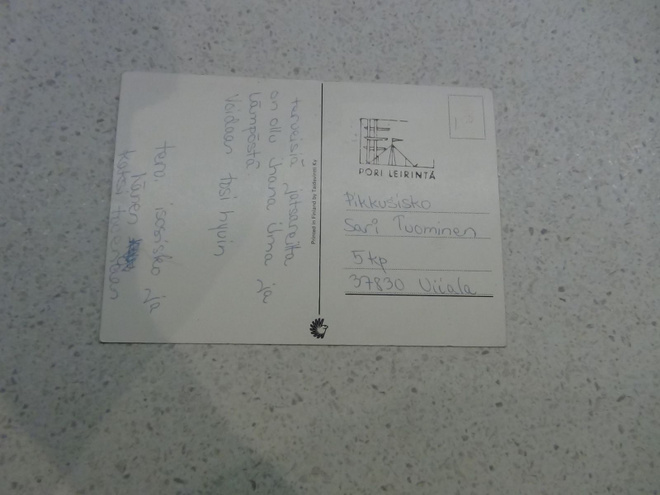 terveisiä
on ollu ihana ilma ja
lämpöstä
Voidaan tosi hyvin
tero isosisko ja
Printed in Finland by
PORI LEIRINTÄ
Pikkusisko
Sari Tuominen
5 kp
37830 Viiala